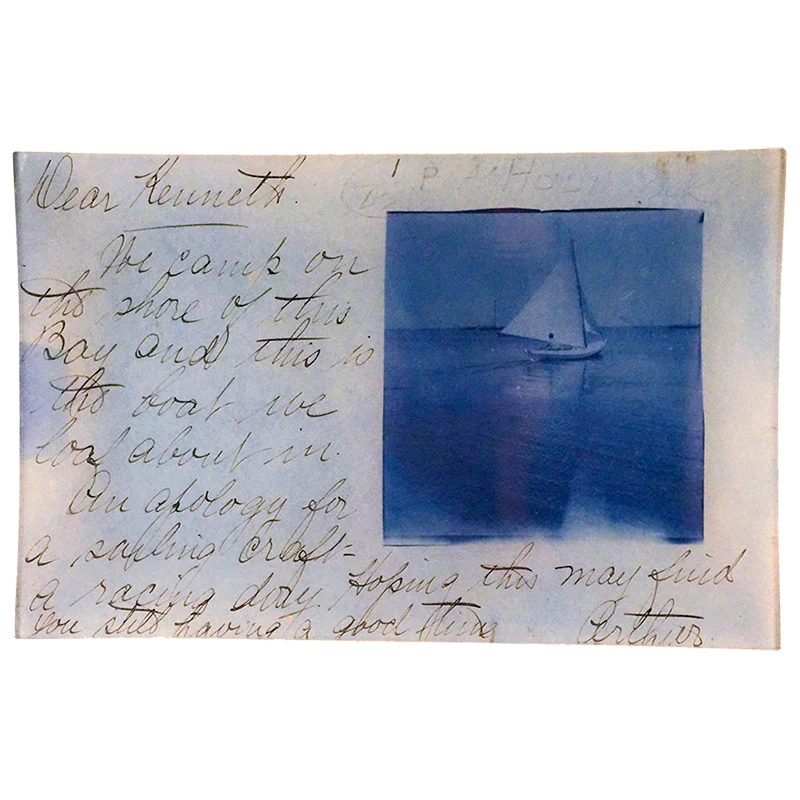 Dear Kenneth.
We camp on
the shore of this
Bay and this is
the boat we
loaf about in.
An apology for
a sailing craft-
a racing dory. Hoping this may find
you still having a good time
Arthur.